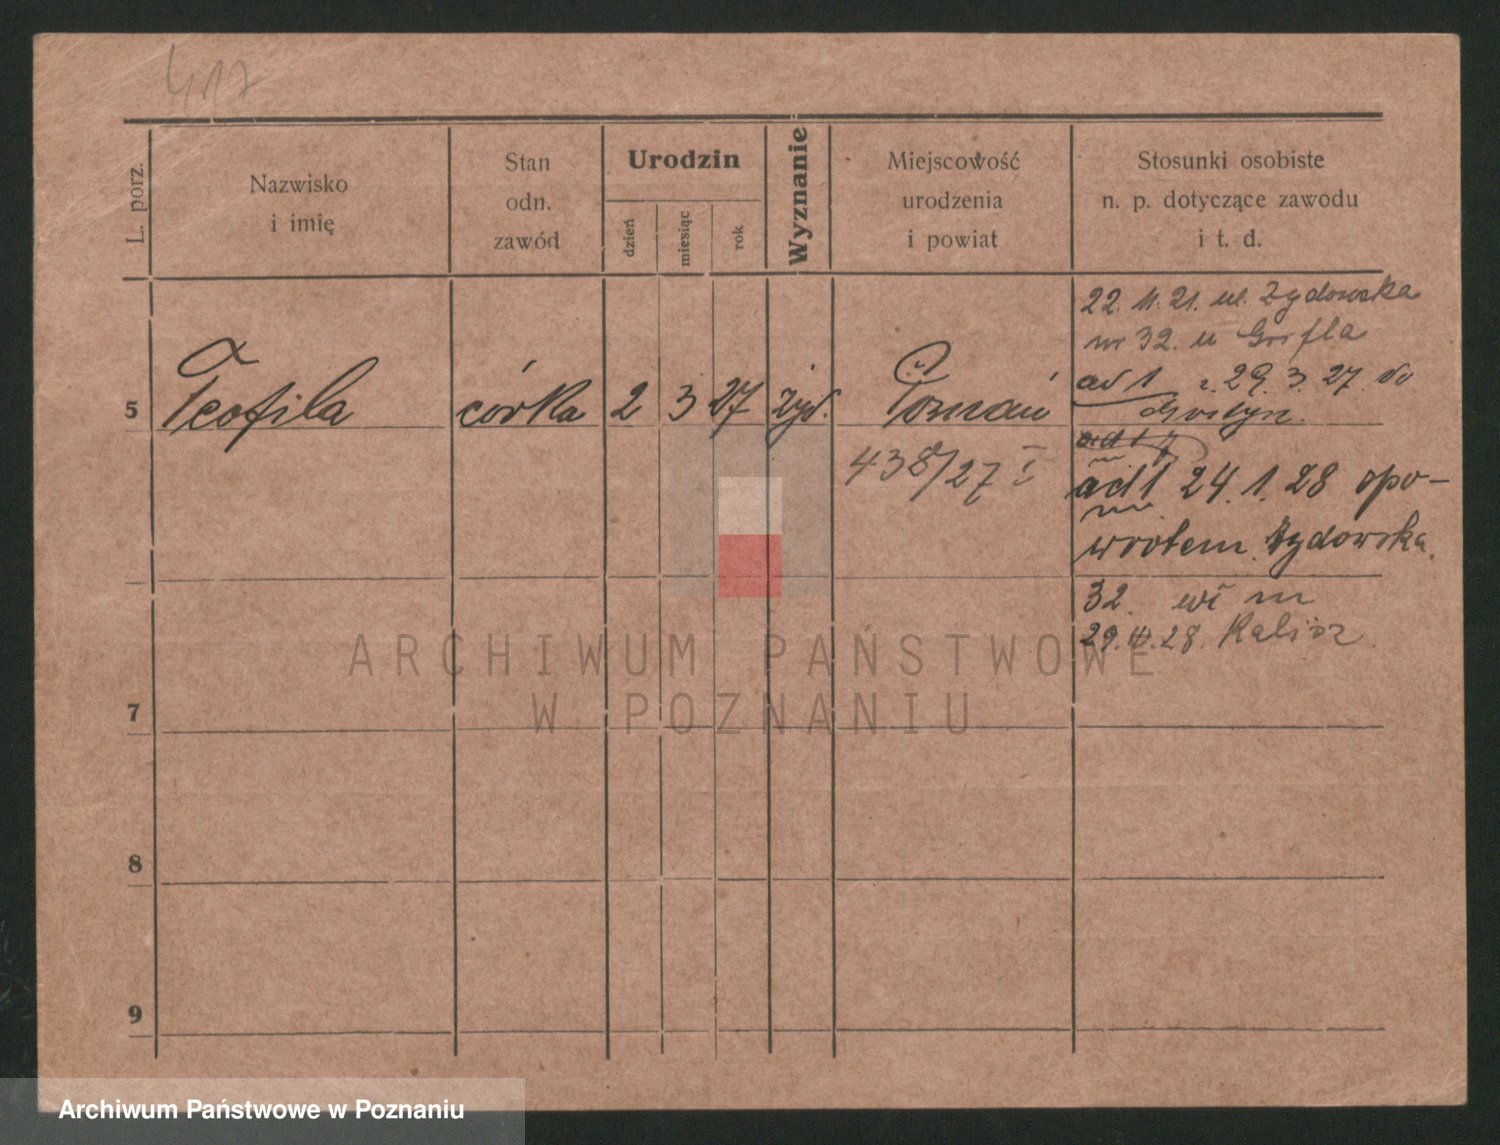 417
L. porz.
Nazwisko
i imię
Stan
odn.
zawód
Urodzin
dzień
miesiąc
rok
Wyznanie
Miejscowość
urodzenia
i powiat
Stosunki osobiste
n. p. dotyczące zawodu
i t. d.
22. 11. 21. ul. Żydowska
nr 32. u
5 Teofila córka 2 3 27 żyd. Poznań
ad 1 z. 29. 3. 27. do
Gostyn.
438/27 I
ad 1
ad 1 24. 1. 28 spo-
wrotem Żydowska.
32.
29. 28. Kalisz
7
8
9
ARCHIWUM PAŃSTWOWE
W POZNANIU
Archiwum Państwowe w Poznaniu